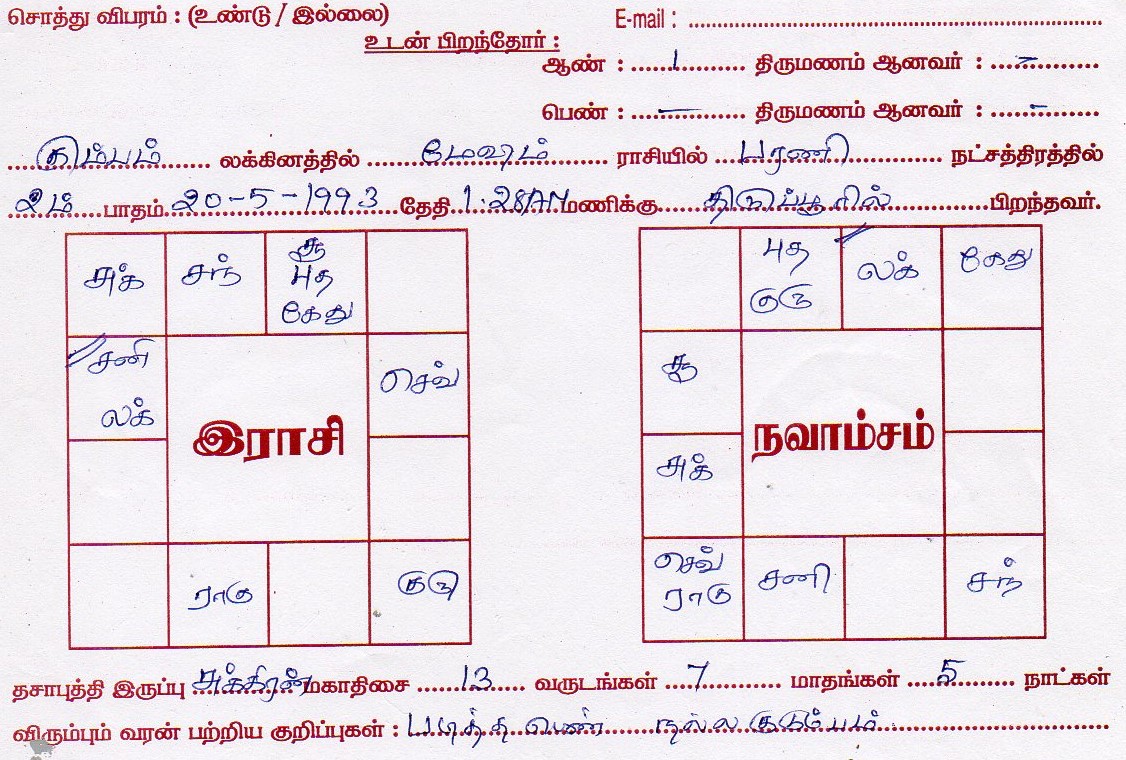 சொத்து விபரம் : (உண்டு / இல்லை) E-mail : ................
உடன் பிறந்தோர் :
ஆண் : ......1......... திருமணம் ஆனவர் : ...-...........
பெண் : ......-......... திருமணம் ஆனவர் : ......-.......
கும்பம் லக்கினத்தில் மேஷம் ராசியில் பரணி நட்சத்திரத்தில்
2ம் பாதம் 20-5-1993 தேதி 1:28AM மணிக்கு திருப்பூரில் பிறந்தவர்.
சுக் சந் சூ
புத
கேது
சனி
லக்
செவ்
இராசி
ராகு குரு
புத
குரு
லக் கேது
சூ
சுக்
நவாம்சம்
செவ்
ராகு
சனி சந்
தசாபுத்தி இருப்பு சுக்கிரன் மகாதிசை 13 வருடங்கள் 7 மாதங்கள் 5 நாட்கள்
விரும்பும் வரன் பற்றிய குறிப்புகள் : படித்த பெண் நல்ல குடும்பம்